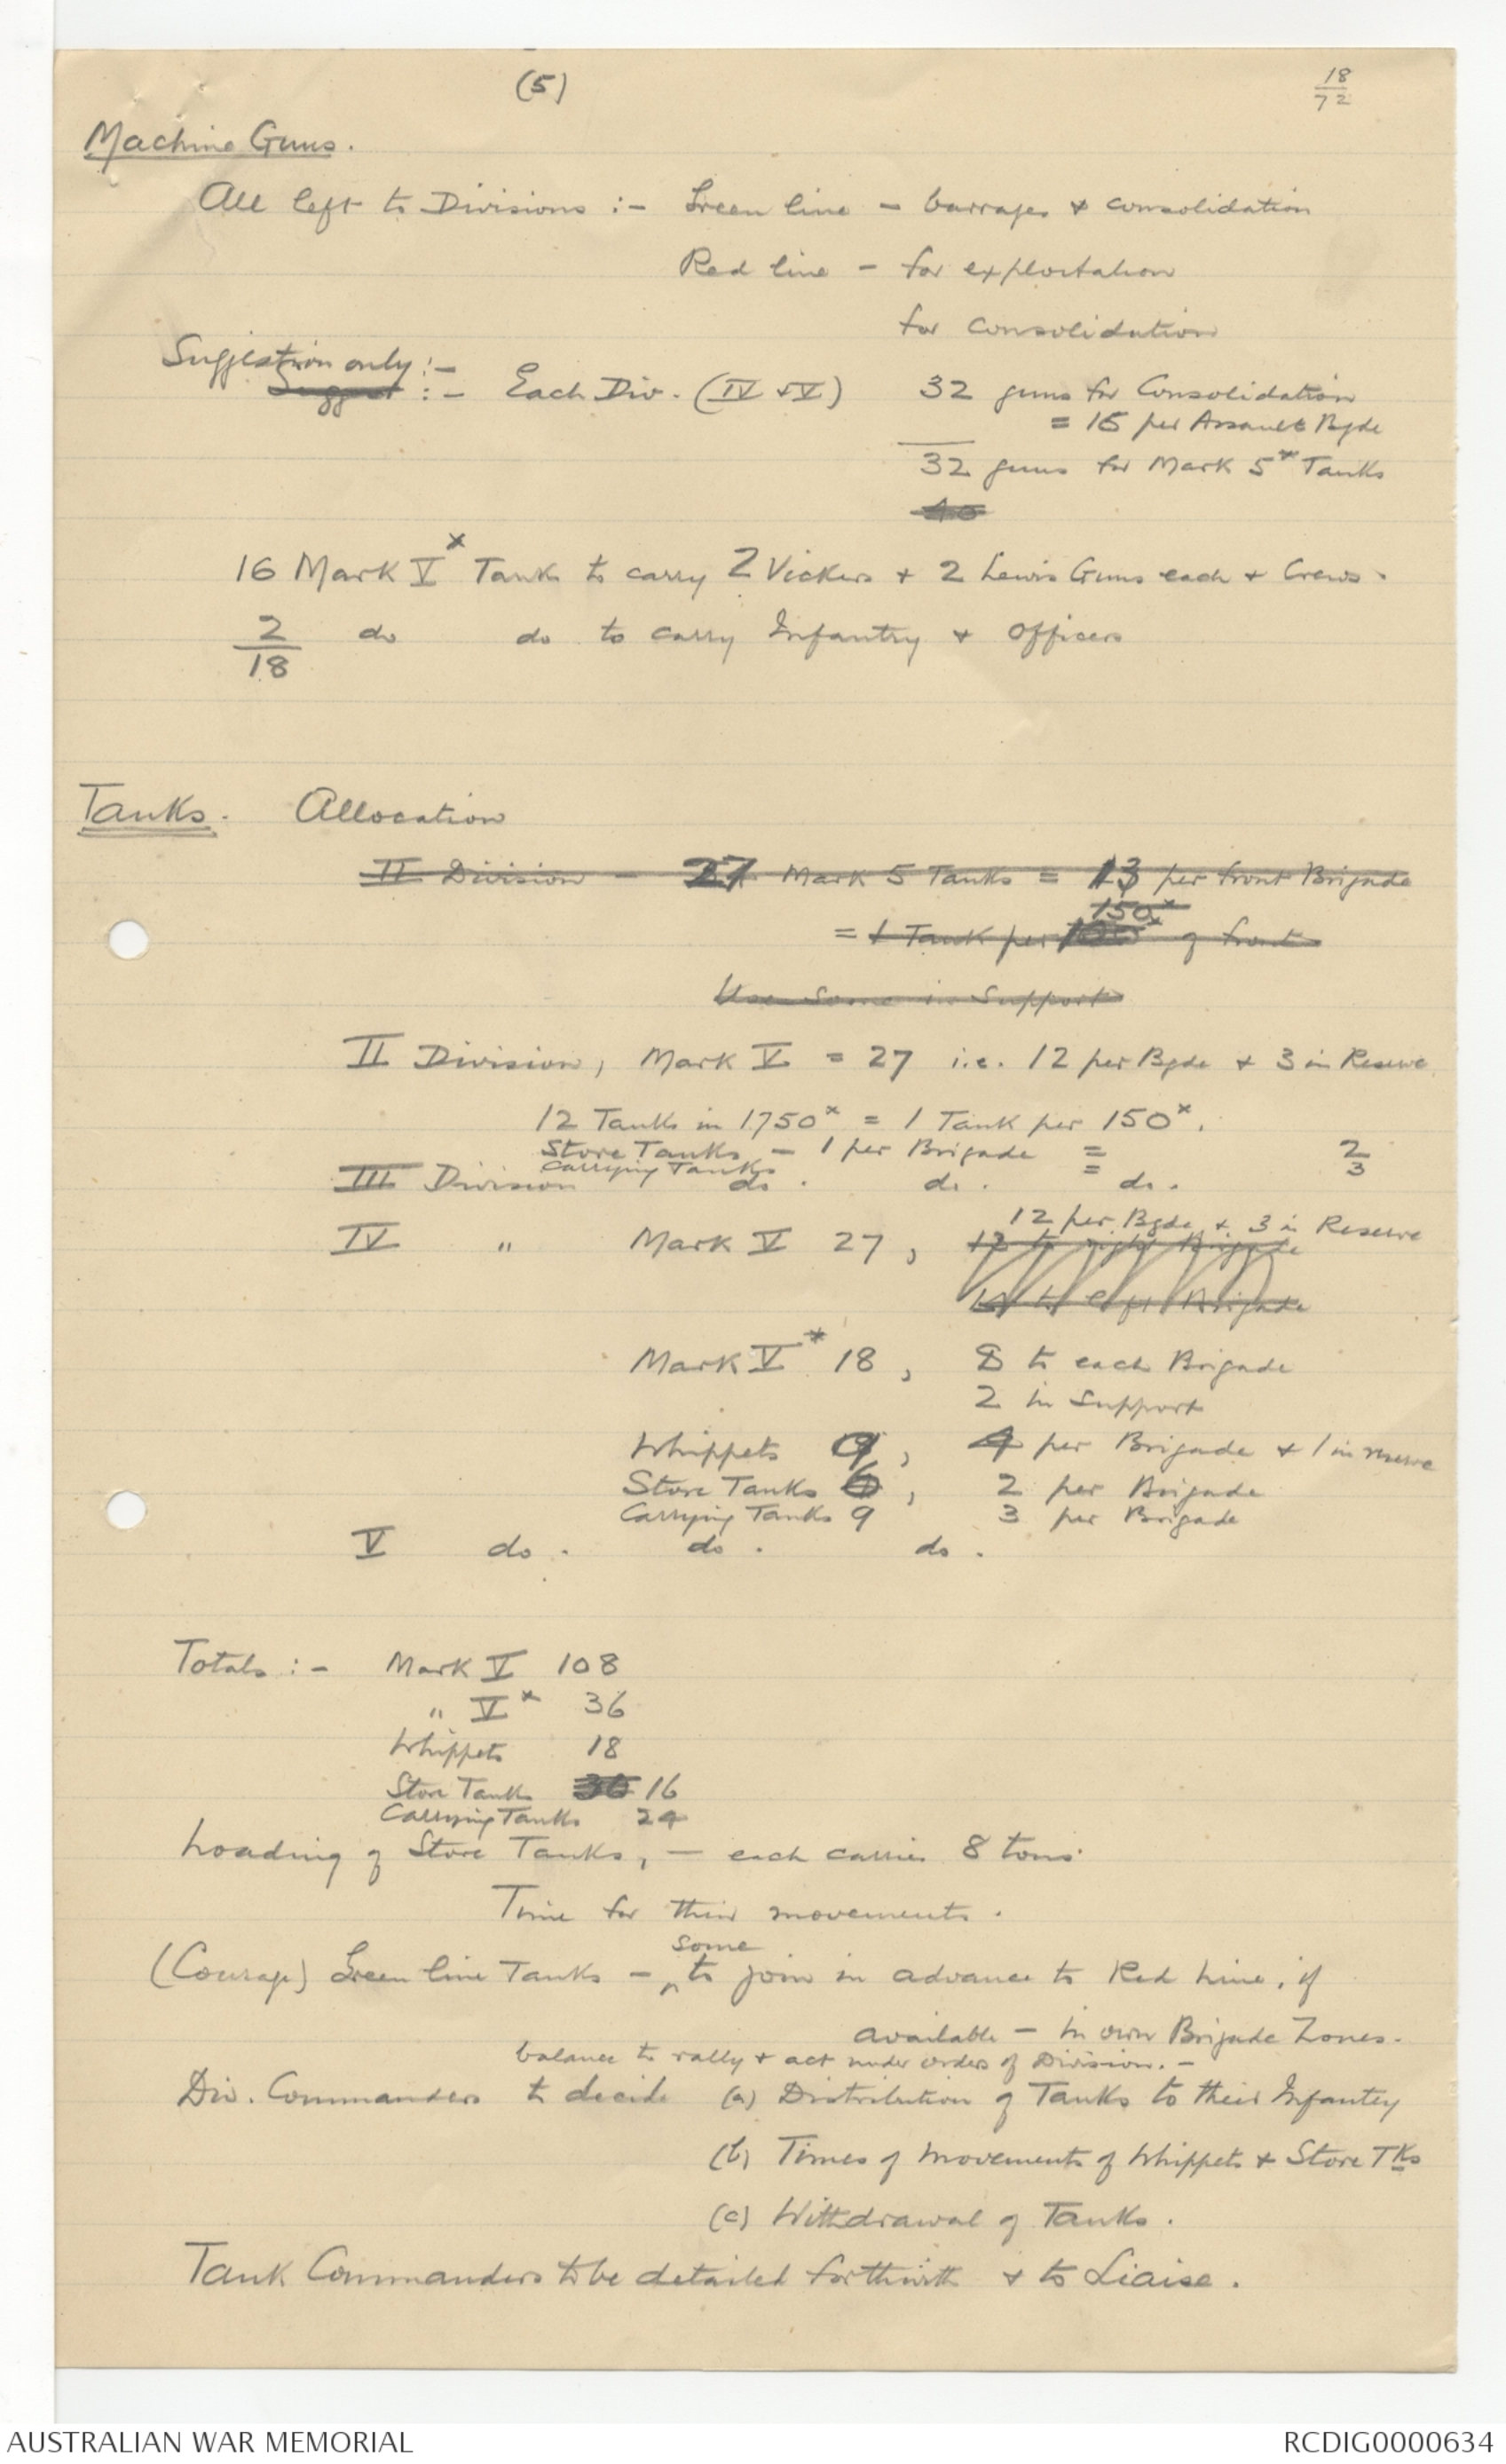 (5)
18/72
Machine Guns.
All left to Divisions :- Green line - barrages & consolidation
Red line - for exploitation
for consolidation
Suggestion only :-
Suggest :- Each Div. (IV & V) 32 guns for Consolidation
= 16 per Assault Bgde
32 guns for Mark 5* Tanks
40
16 Mark V* Tanks to carry 2 Vickers + 2 Lewis Guns each + Crews.
2 do do to carry Infantry & Officers
18
Tanks. Allocation
II Division - 27 Mark 5 Tanks = 13 per front Brigade
150x
= 1 Tank per 100x of front
Use some in Support
II Division, Mark V = 27 i.e. 12 per Bgde & 3 in Reserve
12 Tanks in 1750x = 1 Tank per 150x.
Store Tanks - 1 per Brigade = 2
Carrying Tanks = 3
III Division do. do. do.
12 per Bgde & 3 in Reserve
IV " Mark V 27, 12 to right Brigade
to left Brigade
Mark V* 18, 8 to each Brigade
2 in Support
Whippets 9, 4 per Brigade & 1 in reserve
Store Tanks 6, 2 per Brigade
Carrying Tanks 9 3 per Brigade
V do. do. do.
Totals :- Mark V 108
" V* 36
Whippets 18
Store Tanks 36 16
Carrying Tanks 24
Loading of Store Tanks, - each carries 8 tons.
Time for their movements.
some
(Courage) Green line Tanks - ^ to join in advance to Red Line, if
available - in own Brigade Zones.
balance to rally & act under orders of Division. -
Div. Commanders to decide (a) Distribution of Tanks to their Infantry
(b) Times of movements of Whippets & Store Tks
(c) Withdrawal of Tanks.
Tank Commanders to be detailed forthwith & to Liaise.
AUSTRALIAN WAR MEMORIAL
RCDIG0000634